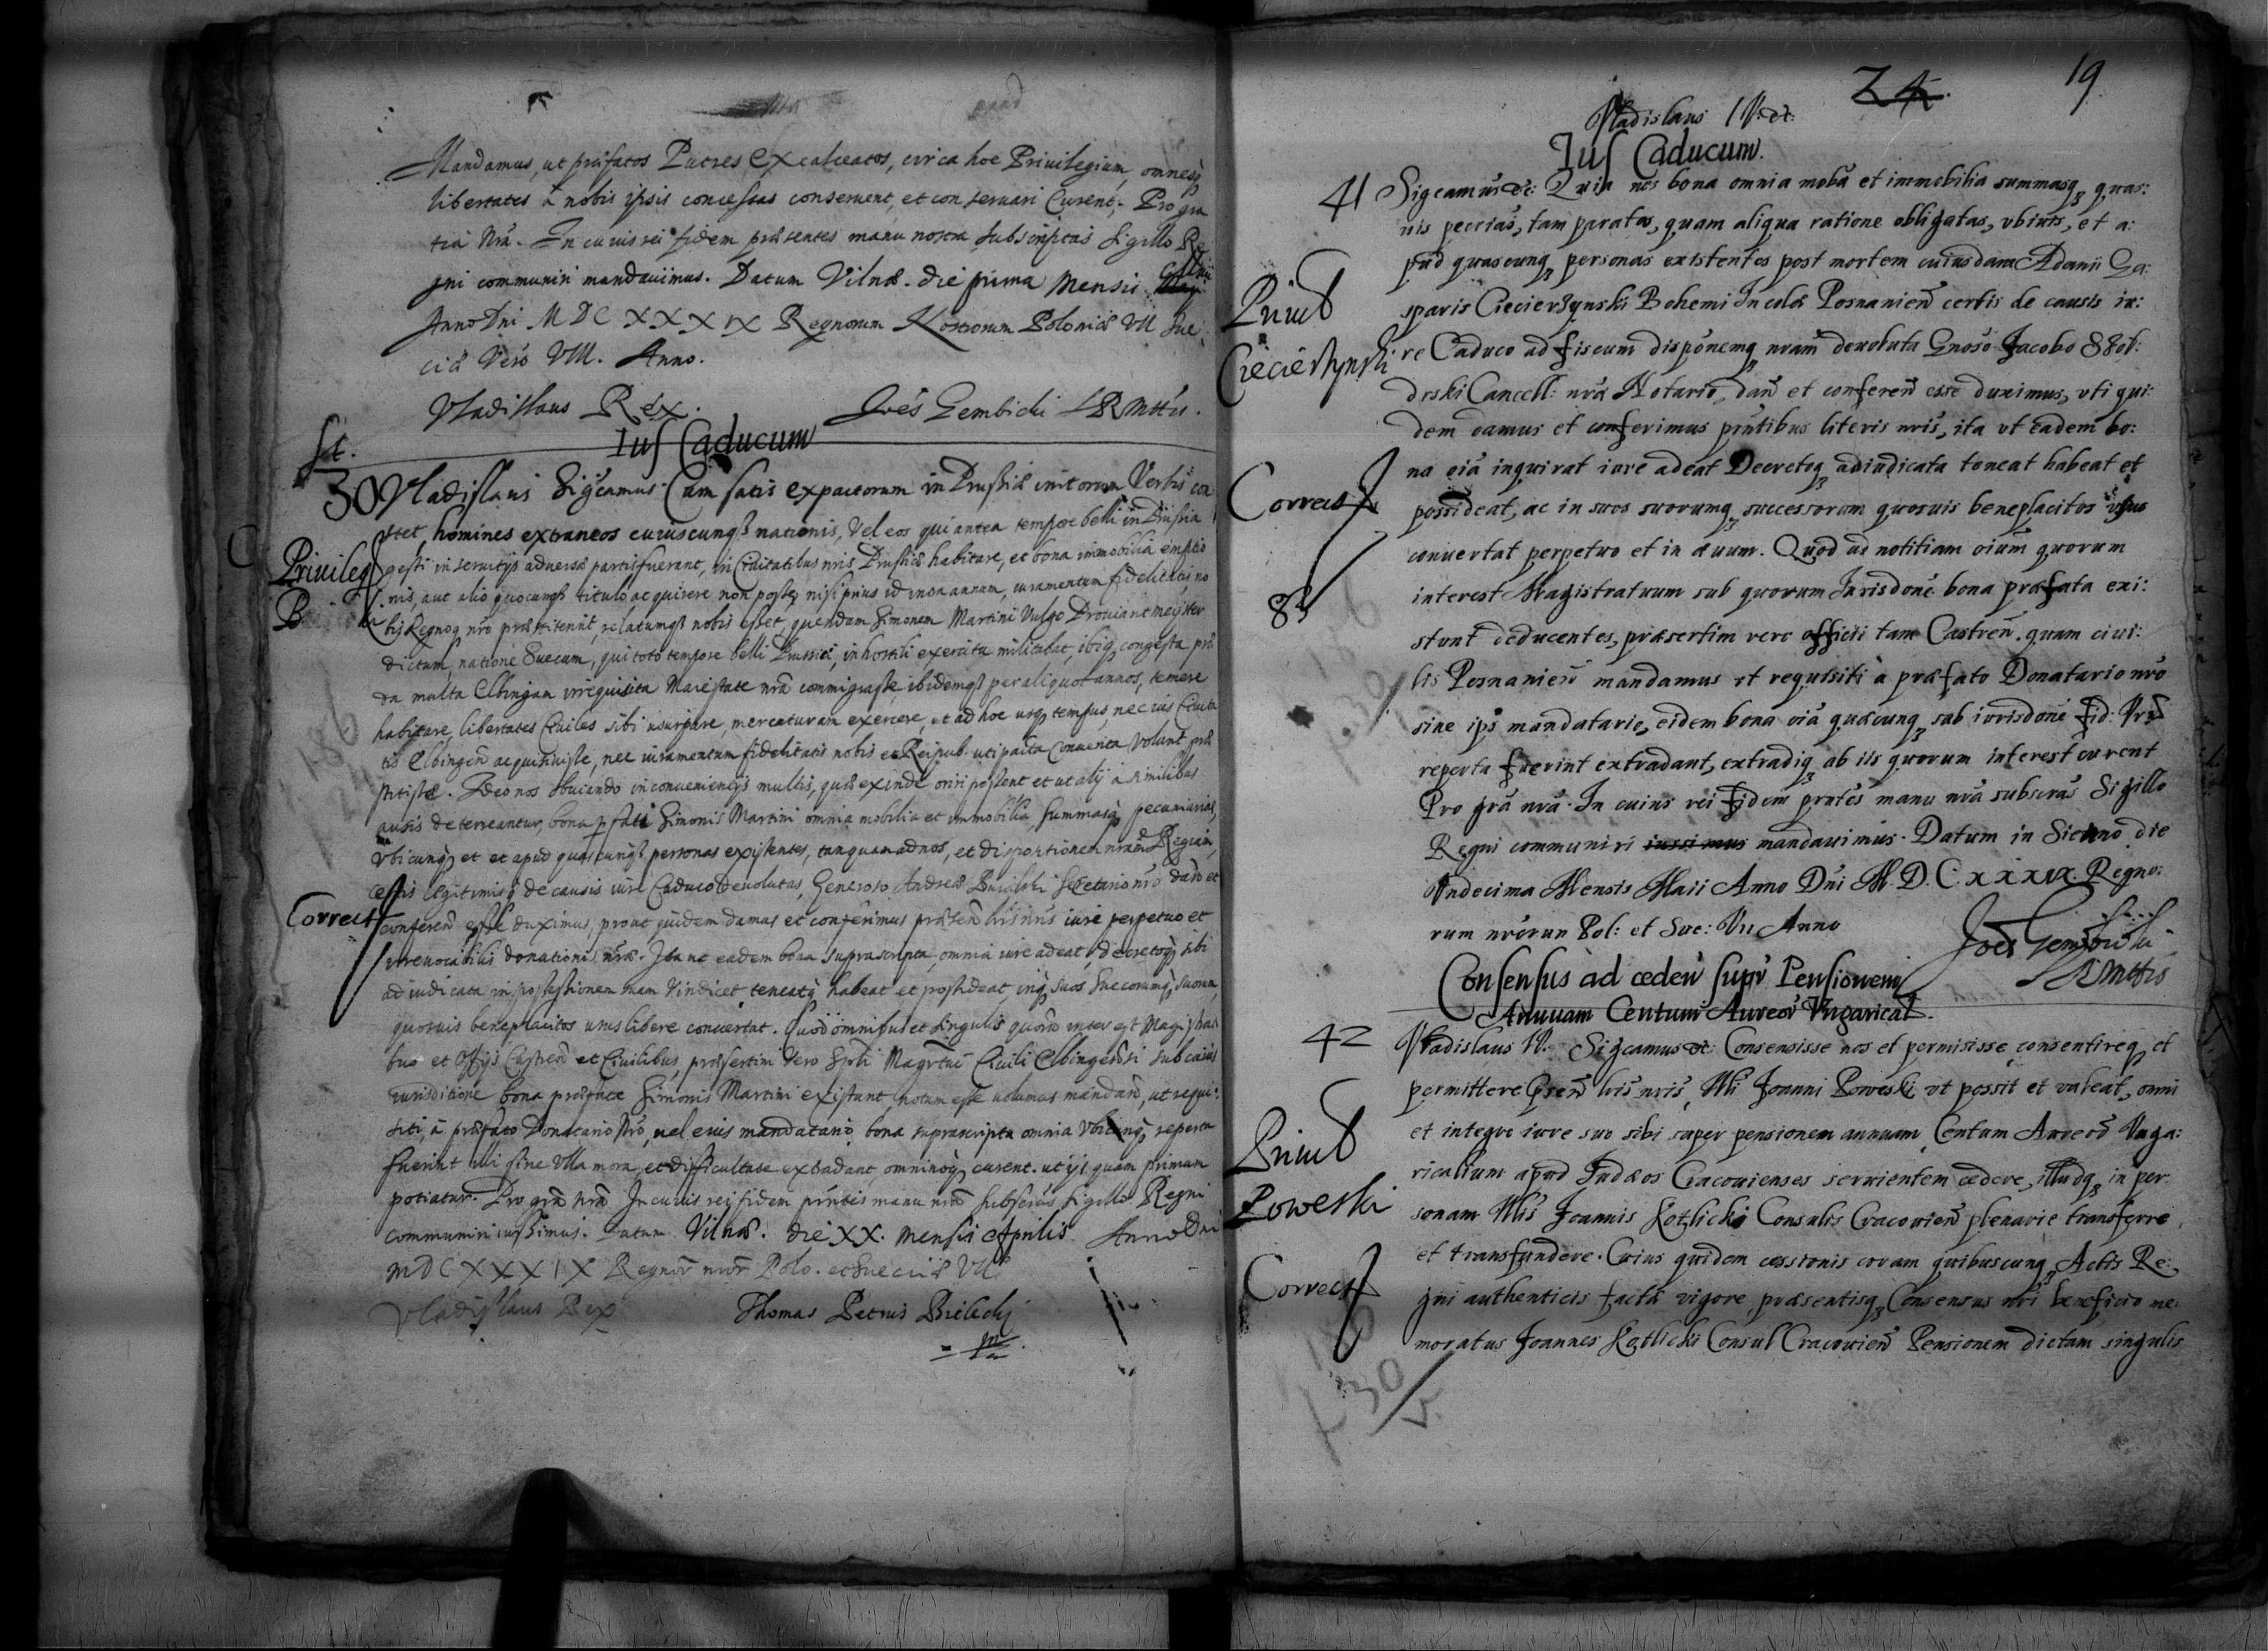 Mandamus, ut præfatos Patres Excalceatos, circa hoc Privilegium, omnesq3
libertates à nobis ipsis concessas conservent, et conservari Curent; Pro gra
tia Nrã. In cuius rei fidem præsentes manu nostra subscriptas Sigillo Re
gni communiri mandavimus. Datum Vilnæ. die prima Mensis
Anno Dni MDCXXXIX Regnorum Nostrorum Poloniæ VII Sue
ciæ Vero VIII. Anno.
Vladislaus Rex. Joes Gembicki
Ius Caducum
30 Vladislaus Sigcamus. Cum satis ex pactorum in Prussia initorum Verbis con
stet, homines extraneos cuiuscunq3 nationis, Vel eos qui antea tempore belli in Prussia
gesti in servitijs adversæ partis fuerant, in Civitatibus nris Prussiæ habitare, et bona immobilia emptio
nis, aut alio quocunq3 titulo acquirere non posse, nisi prius iuramentum fidelitatis no
bis Regnoq3 nro præstiterint, relatumq3 nobis esset, quendam Simonem Martini Vulgo Proviantmeyster
dictum, natione Suecum, qui toto tempore belli Prussici, in hostili exercitu militabat, ibiq3 congesta præ
da multa Elbingam irrequisita Maiestate nrã commigrasse, ibidemq3 per aliquot annos, temere
habitare, libertates Civiles sibi usurpare, mercaturam exercere, et ad hoc usq3 tempus, nec ius Civita
tis Elbingen̄ acquisivisse, nec iuramentum fidelitatis nobis et Reipub. uti pacta Conventa Volunt præ
stitisse. Ideo nos obviando inconvenientijs multis, quæ exinde oriri possent et ut alij a similibus
ausis deterreantur, bona pfati Simonis Martini omnia mobilia et immobilia, Summasq3 pecuniarias,
Vbicunq3 et et apud quascunq3 personas existentes, tanquam ad nos, et dispositionem nram Regiam,
certis legitimisq3 de causis iure Caduco devolutas, Generoso Andreæ Secretario nro dan̄ et
conferen̄ esse duximus, prout quidem damus et conferimus præsen̄ lris nris iure perpetuo et
irrevocabilis donationis nræ. Ita ut eadem bona suprascripta, omnia iure adeat, decretoq3 sibi
adiudicata in possessionem suam Vindicet, teneatq3 habeat et possideat, inq3 suos Successorumq3 suorum,
quosuis beneplacitos usus libere convertat. Quod omnibus et singulis quorū interest Magistra
tuo et Offijs Castren̄ et Civilibus, præsertim Vero Spbli Magrtui Civili Elbingensi sub cuius
iurisditione bona præfatæ Simonis Martini existunt, notum esse volumus mandan̄, ut requi:
siti, à præfato Donatario Nrõ, vel eius mandatario, bona suprascripta omnia Vbicunq3 reperta
fuerint illi sine Vlla mora, et difficultate extradant, omninoq3 curent. ut ijs quam primum
potiatur. Pro grã nrã In cuius rei fidem prntes manu nrã Subscras Sigillo Regni
communiri iussimus. Datum Vilnæ. die XX. Mensis Aprilis Anno Dni
MDCXXXIX Regnor nror Polo. et Sueciæ VII
Vladislaus Rex Thomas Petrus Bielecki
Privileg
Correct
19
24
Vladislaus IV. etc:
Ius Caducum.
41 Sigcamus etc: Quia nos bona omnia moba et immobilia summasq3 quas:
vis pecrias, tam paratas, quam aliqua ratione obligatas, vbivis, et a:
pud quascunq3 personas existentes post mortem cuiusdam Adami Ga:
sparis Ciecierzynski Bohemi Incolæ Posnanien̄ certis de causis iu:
re Caduco ad fiscum disponemq3 nram devoluta Gnoso Jacobo
Cancell: nræ Notario, dan̄ et conferen̄ esse duximus, vti qui:
dem damus et conferimus prntibus literis nris, ita vt eadem bo:
na oia inquirat iure adeat Decretoq3 adiudicata teneat habeat et
possideat, ac in suos suorumq3 successorum quosuis beneplacitos usus
convertat perpetuo et in ævum. Quod ad notitiam oium quorum
interest Magistratuum sub quorum Iurisdone bona præfata exi:
stunt deducentes, præsertim vero officii tam Castren̄. quam civi:
lis Posnanien̄ mandamus vt requisiti à præfato Donatario nrõ
sive ips mandatario, eidem bona oia quæcunq3 sub iurisdone Fid: Vrã
reperta fuerint extradant, extradiq3 ab iis quorum interest curent
Pro grã nrã. In cuius rei fidem prntes manu nrã subscras Sigillo
Regni communiri iussimus mandavimus. Datum in die
Vndecima Mensis Maii Anno Dñi M.D.C.XXXIX. Regno:
rum nrorum Pol: et Sue: VII Anno
Joes Gembicki
Consensus ad ceden̄ supr Pensionem
Annuam Centum Aureor Vngarical.
42 Vladislaus IV. Sigcamus etc: Consensisse nos et permisisse, consentireq3 et
permittere præn̄ lris nris, Nli Joanni Poweski vt possit et valeat, omni
et integro iure suo sibi super pensionem annuam Centum Aureor Vnga:
ricalium apud Iudæos Cracovienses servientem cedere, illudq3 in per:
sonam Nlis Joannis Kotlicki Consulis Cracovien̄ plenarie transferre,
et transfundere. Cuius quidem cessionis coram quibuscunq3 Actis Re:
gni authenticis factæ vigore præsentisq3 Consensus nri beneficio me:
moratus Joannes Kotlicki Consul Cracovien̄ Pensionem dictam singulis
Privil
Ciecierzynski
Correct
83
Privil
Poweski
Correct